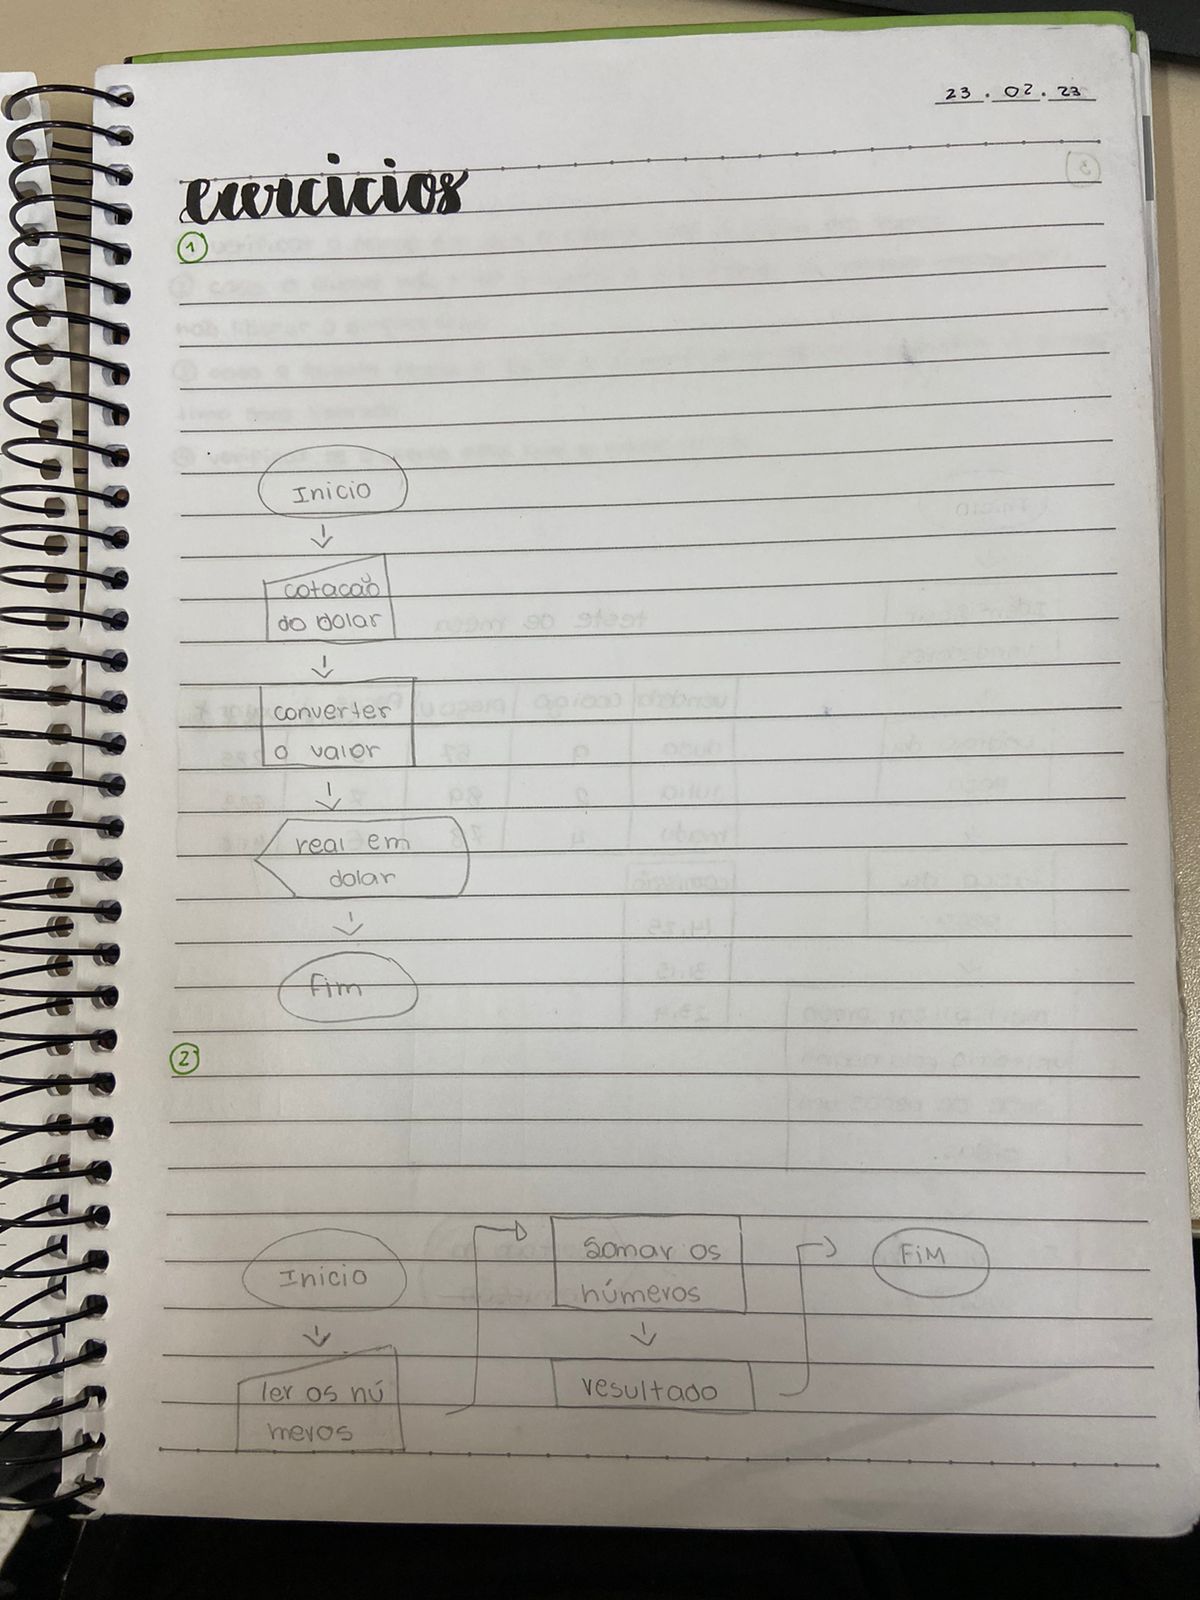 23.02.23
exercicios
1
Inicio
cotacão
do dolar
converter
o valor
real em
dolar
fim
2
Inicio
ler os nú
meros
Somar os
números
resultado
FiM